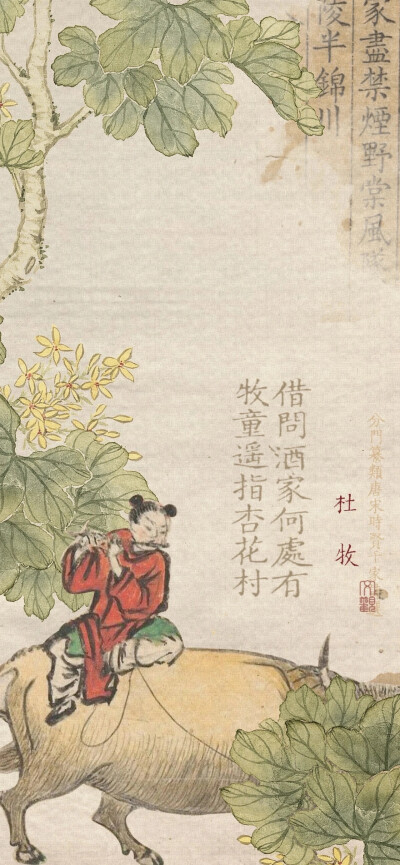 家盡禁煙野棠風
陵半錦川
分門纂類唐宋時賢千家
杜牧
借問酒家何處有
牧童遥指杏花村